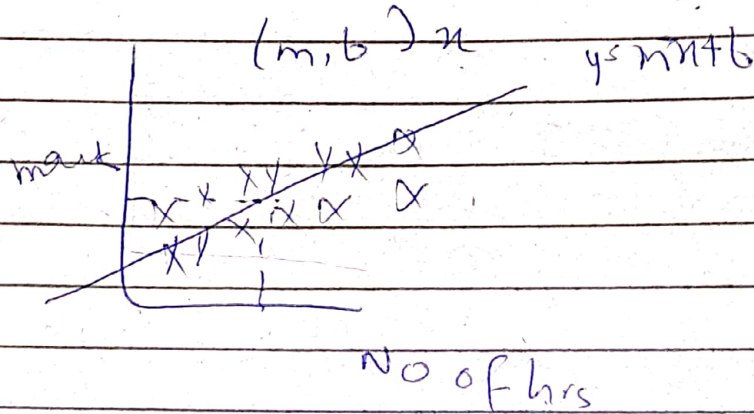 (m, b) x
y = mx + b
mark
No of hrs